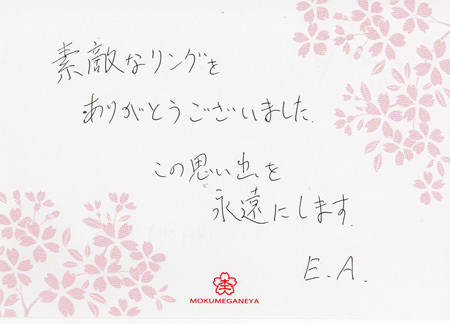 素敵なリングを
ありがとうございました.
この思い出を
永遠にします.
E.A.
MOKUMEGANEYA